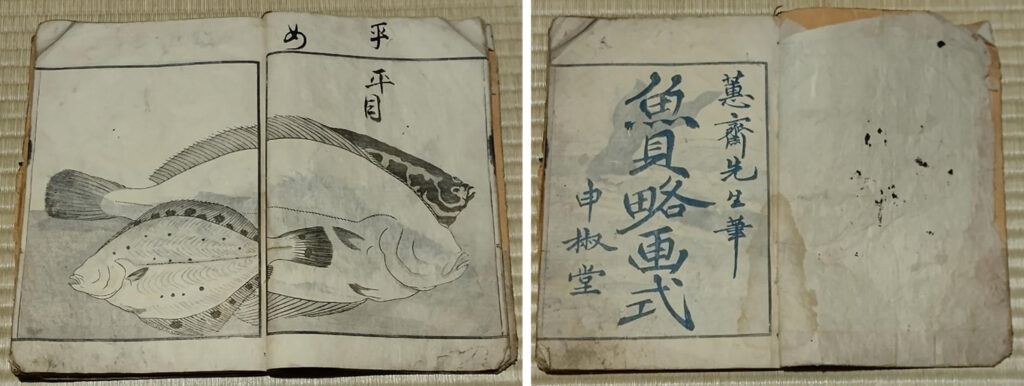 平め
平目
蕙齋先生筆
魚貝略画式
申椒堂